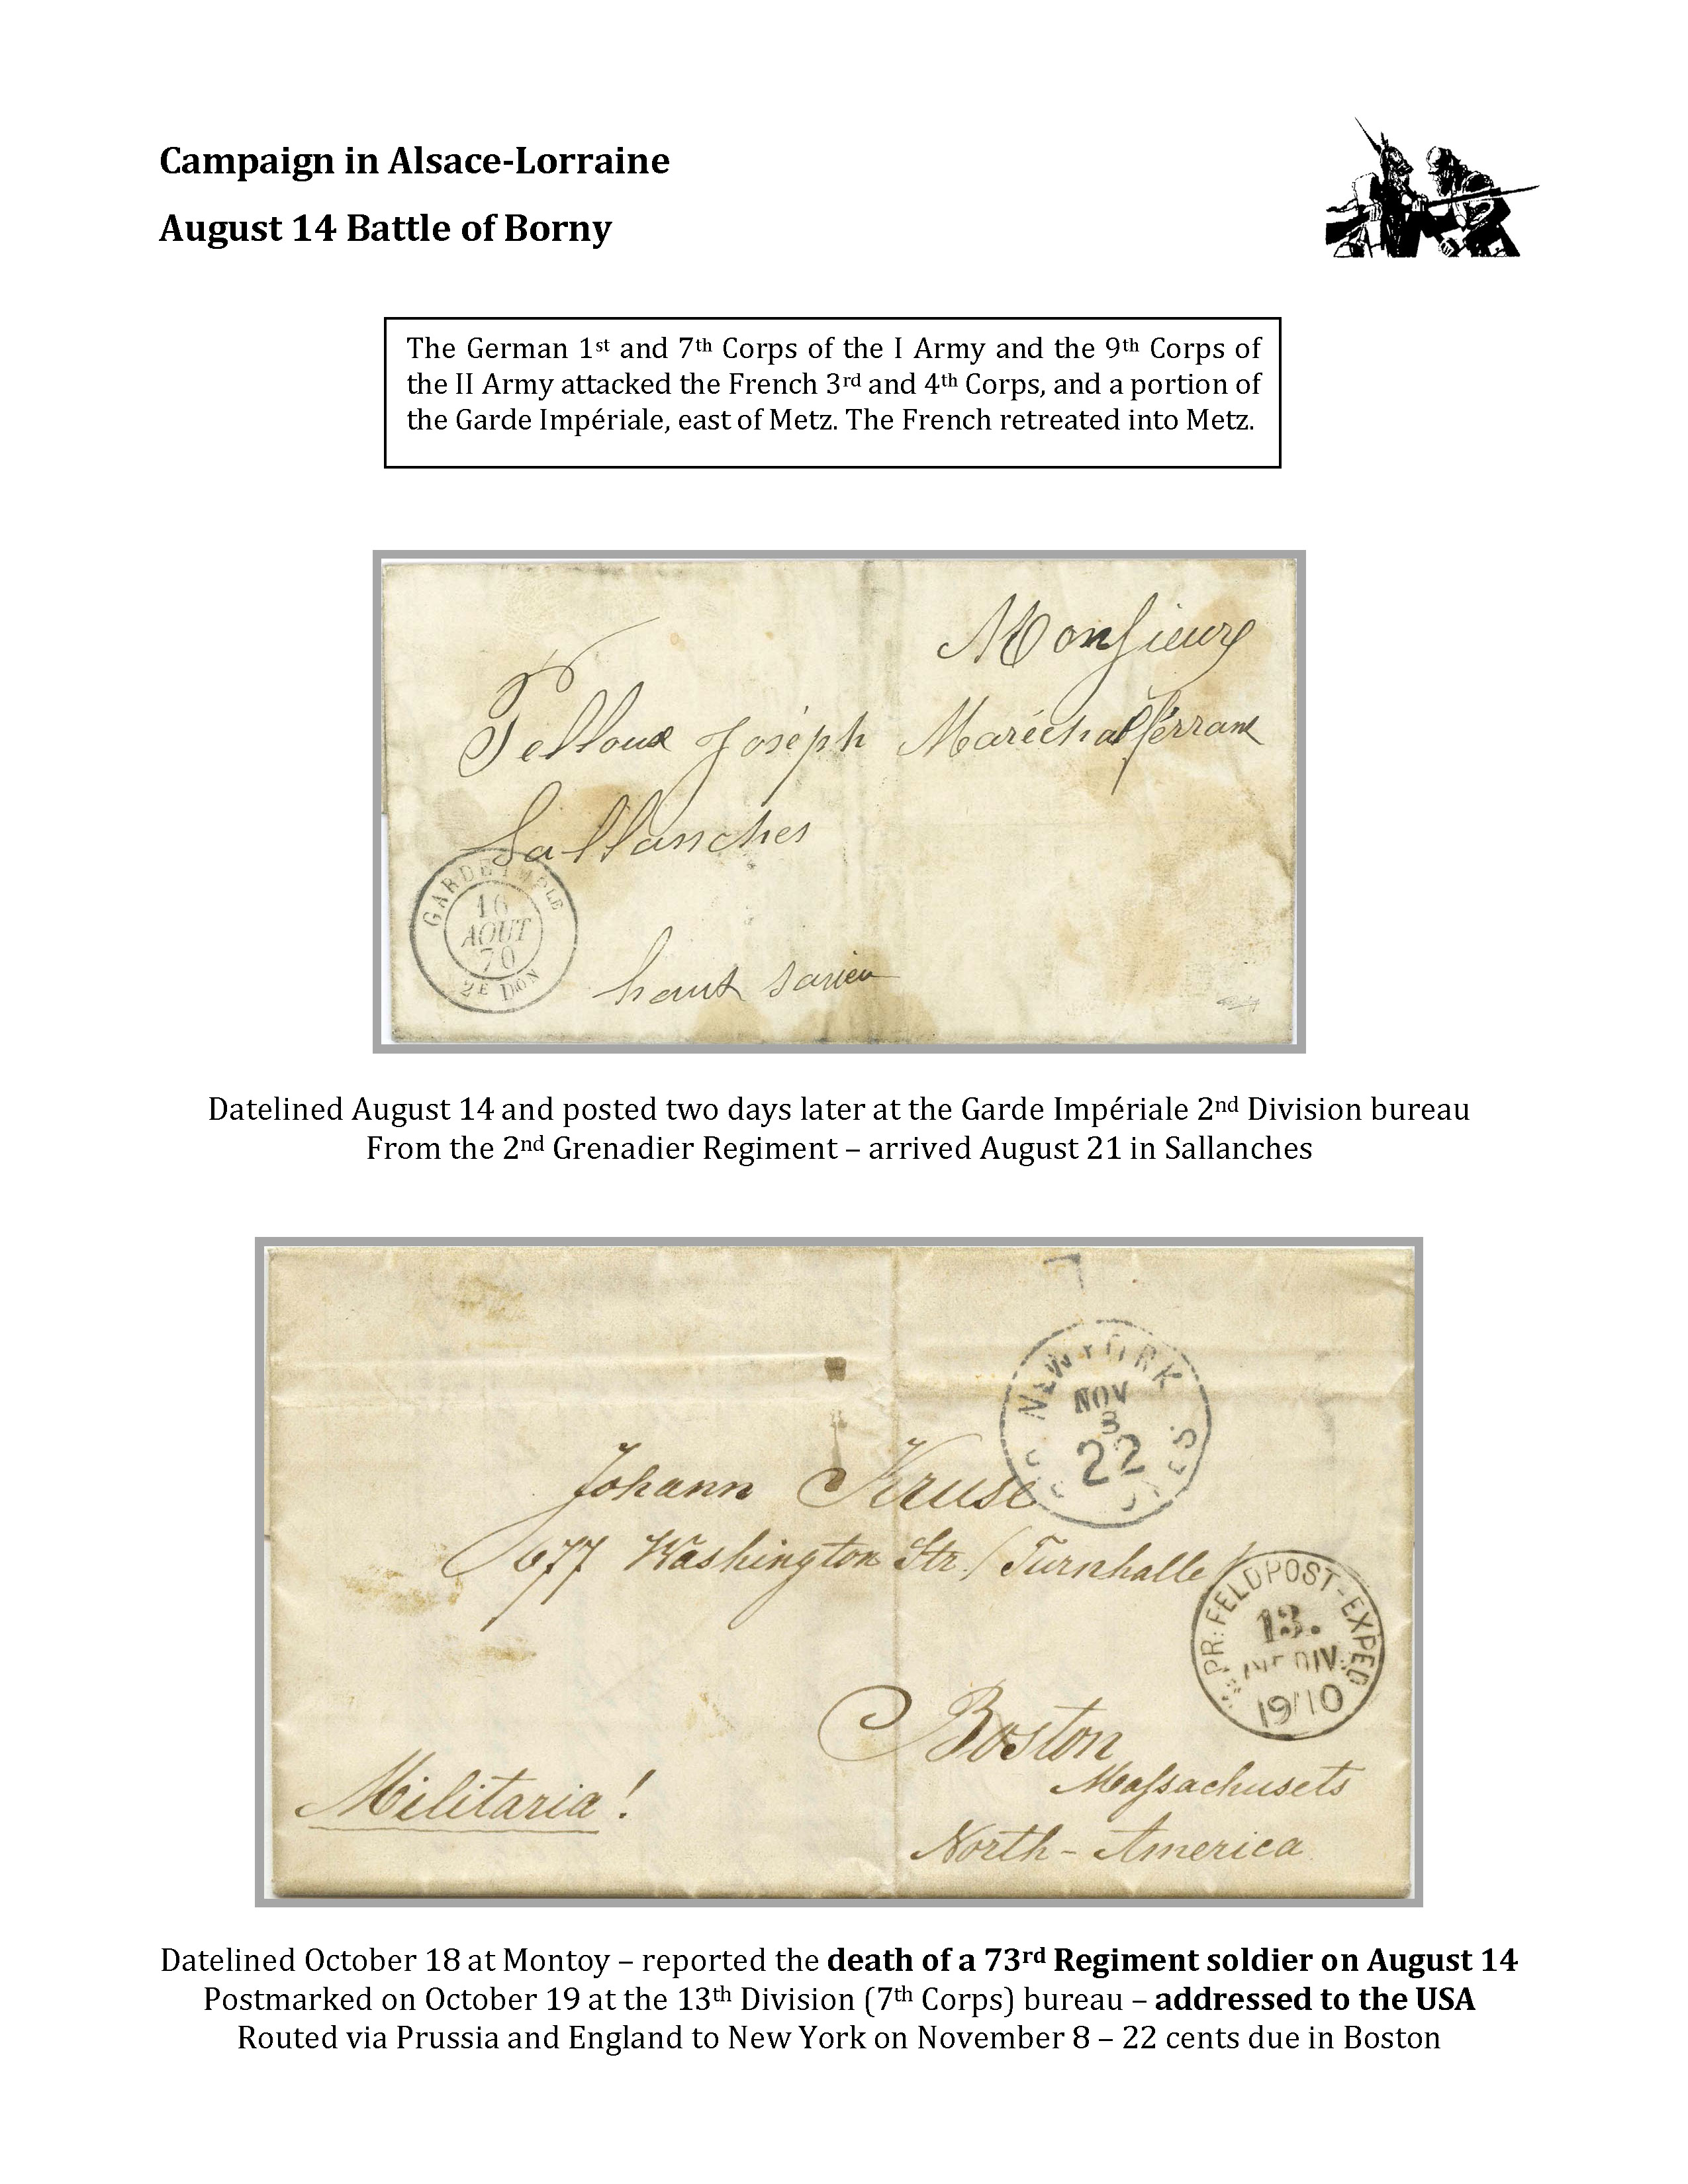 Campaign in Alsace-Lorraine
August 14 Battle of Borny
The German 1st and 7th Corps of the I Army and the 9th Corps of
the II Army attacked the French 3rd and 4th Corps, and a portion of
the Garde Impériale, east of Metz. The French retreated into Metz.
Monsieur
Felloux Joseph Maréchal ferrant
Sallanches
GARDE IMPLE
16
AOUT
70
2E DON
haut savien
Datelined August 14 and posted two days later at the Garde Impériale 2nd Division bureau
From the 2nd Grenadier Regiment – arrived August 21 in Sallanches
NEW YORK
NOV
8
22
Johann Kruse
677 Washington Str. / Turnhalle /
PR: FELDPOST-EXPED
13.
INF DIV.
19/10
Boston
Massachusets
North-America
Militaria!
Datelined October 18 at Montoy – reported the death of a 73rd Regiment soldier on August 14
Postmarked on October 19 at the 13th Division (7th Corps) bureau – addressed to the USA
Routed via Prussia and England to New York on November 8 – 22 cents due in Boston